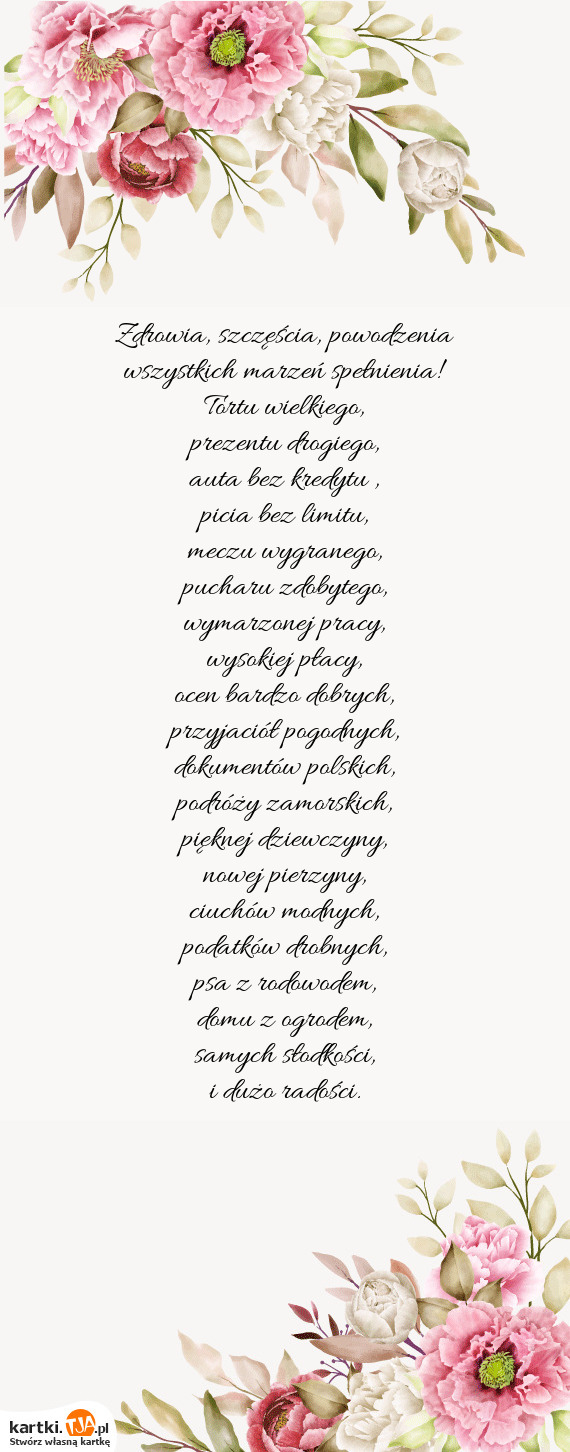 Zdrowia, szczęścia, powodzenia
wszystkich marzeń spełnienia!
Tortu wielkiego,
prezentu drogiego,
auta bez kredytu ,
picia bez limitu,
meczu wygranego,
pucharu zdobytego,
wymarzonej pracy,
wysokiej płacy,
ocen bardzo dobrych,
przyjaciół pogodnych,
dokumentów polskich,
podróży zamorskich,
pięknej dziewczyny,
nowej pierzyny,
ciuchów modnych,
podatków drobnych,
psa z rodowodem,
domu z ogrodem,
samych słodkości,
i dużo radości.
kartki.TJA.pl
Stwórz własną kartkę